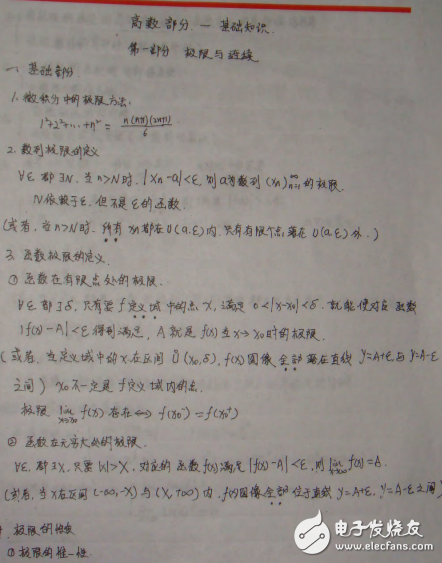 高数部分 — 基础知识.
第一部分 极限与连续
一、基础部分
1. 微积分中的极限方法:
1²+2²+…+n² = n(n+1)(2n+1)/6
2. 数列极限的定义
∀ε 都∃N. 当n>N时. |Xn-a|<ε, 则a为数列 {Xn}ₙ₌₁^∞ 的极限.
N依赖于ε, 但不是ε的函数.
(或者, 当n>N时, 所有xn都在U(a,ε)内, 只有有限个落在U(a,ε)外.)
3. 函数极限的定义.
① 函数在有限点处的极限.
∀ε 都∃δ, 只要f定义域中的点x, 满足 0<|x-x₀|<δ. 就能使对应函数
|f(x)-A|<ε 得到满足, A就是f(x)当x→x₀时的极限.
(或者, 当定义域中的x在区间Ů(x₀,δ), f(x)图像全部落在直线 y=A+ε与y=A-ε
之间) x₀不一定是f定义域内的点.
极限 lim f(x) 存在⇔ f(x₀⁻)=f(x₀⁺)
② 函数在无穷大处的极限.
∀ε. 都∃X, 只要|x|>X, 对应的函数f(x)满足|f(x)-A|<ε, 则 lim f(x)=A.
(或者, 当x在区间(-∞,-X)与(X,+∞)内, f(x)图像全部位于直线y=A+ε, y=A-ε之间)
极限的性质
①极限的唯一性.
电子发烧友
www.elecfans.com